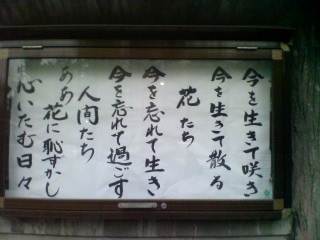 今を生きて咲き
今を生きて散る
花たち
今を忘れて生き
今を忘れて過ごす
人間たち
ああ花に恥ずかし
心いたむ日々